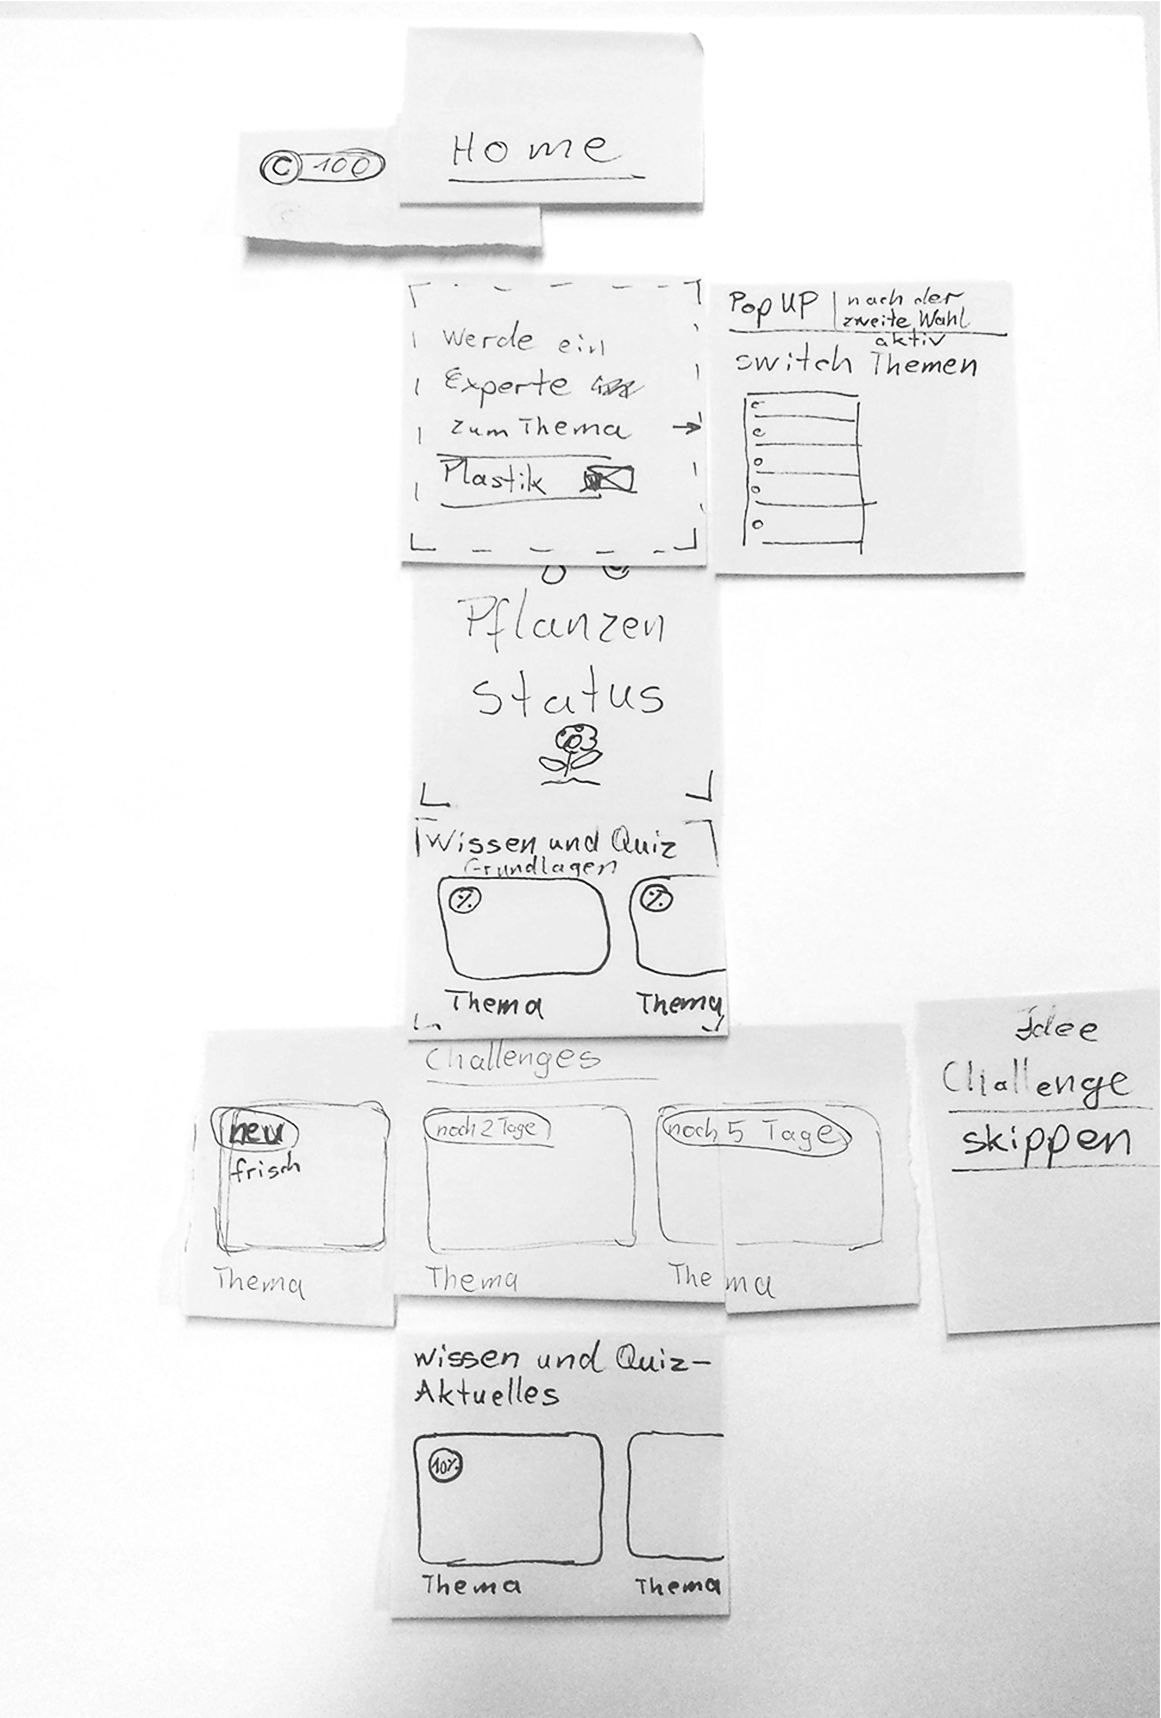 Home
C 100
Werde ein
Experte
zum Thema
Plastik
Pop UP | nach der
zweite Wahl
aktiv
switch Themen
Pflanzen
Status
Wissen und Quiz
Grundlagen
%
%
Thema
Thema
Challenges
neu
frisch
Thema
noch 2 Tage
Thema
noch 5 Tage
Thema
Idee
Challenge
skippen
Wissen und Quiz-
Aktuelles
10%
Thema
Thema